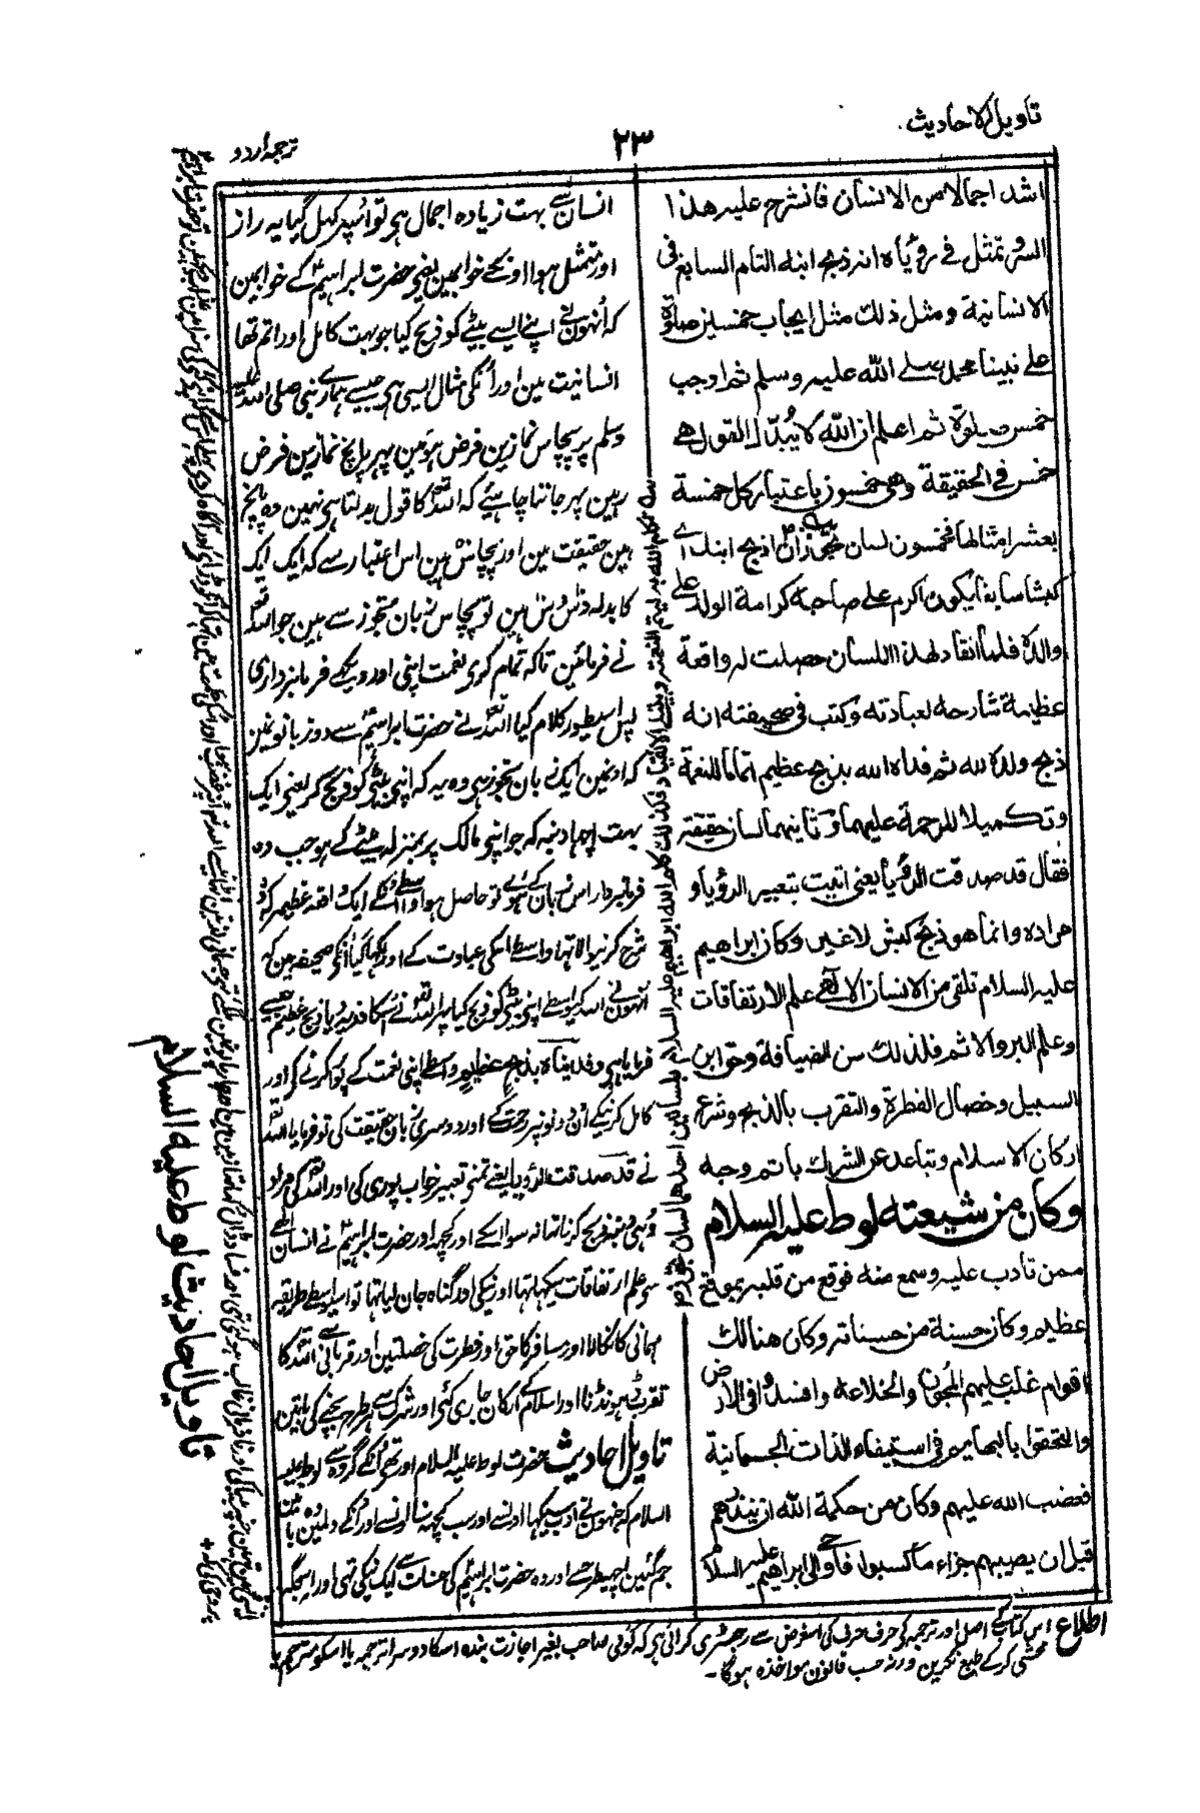 تاویل الاحادیث
۲۳
ترجمہ اردو
اشد اجمالا من الانسان فانشرح علیه هذا
السر وتمثل فی رؤیاه انہ ذبح ابنه التام السابغ فی
الانسانیة ومثل ذلك مثل ایجاب خمسین صلوٰة
علی نبینا محمد صلے الله علیه وسلم ثم اوجب
خمس صلوٰة ثم اعلم ان الله لا یُبدّل القول هے
خمس فی الحقیقة وهی خمسون باعتبار کل حسنة
بعشر امثالها فخمسون لسان تجوز ان اذبح ابنك اے
کبشا سابغا یکون اکرم علی صاحبه کرامة الولد علی
والدہ فلما انقاد لهذا اللسان حصلت له واقعة
عظیمة شارحة لعبادته وکتب فی صحیفته انه
ذبح ولده لله ثم فداه الله بذبح عظیم اتماما للنعمة
وتکمیلا للرحمة علیهما وثانیهما لسان حقیقة
فقال قد صدقت الرؤیا یعنی اتیت بتعبیر الرؤیا و
مراده وانما هو ذبح کبش لا غیر وکان ابراهیم
علیه السلام تلقی من الانسان الالٰهی علم الارتفاقات
وعلم البر والاثم فلذلك سن الضیافة وحق ابن
السبیل وخصال الفطرة والتقرب بالذبح وشرع
ارکان الاسلام وتباعد عن الشرك باتم وجه
وکان من شیعته لوط علیه السلام
ممن تادب علیه وسمع منه فوقع من قلبه بموقع
عظیم وکان حسنة من حسناته وکان هنالك
اقوام غلب علیهم المجون والخلاعة وافسدوا فی الارض
والتحقوا بالبهایم فی استیفاء اللذات الجسمانیة
فغضب الله علیهم وکان من حکمة الله ان ینذرهم
قبل ان یصیبهم جزاء ما کسبوا فاوحی الی ابراهیم علیه السلام
انسان سے بہت زیادہ اجمال ہی تو انپر کہل گیا یہ راز
اور متمثل ہوا اونکے خوابمین یعنی حضرت ابراہیمؑ کے خوابمین
کہ اُنہوں نے اپنے ایسے بیٹے کو ذبح کیا جو بہت کامل اور اتم تہا
انسانیت مین اور اُنکی مثال ایسی ہی جیسے ہمارے نبی صلی اللہ علیہ
وسلم پر پچاس نمازین فرض ہوئین پہر پانچ نمازین فرض
رہین پہر جاننا چاہیئے کہ اللہ کا قول بدلتا ہی نہین وہ پانچ
ہین حقیقت مین اور پچاس ہین اس اعتبار سے کہ ایک ایک
کا بدلہ دس دس ہین تو پچاس زبان تجوز سے ہین جو اللہ
نے فرمائین تاکہ تمام کرے نعمت اپنی اور دیکھے فرمانبرداری
پس اسیطور کلام کیا اللہ نے حضرت ابراہیمؑ سے دو زبانونمین
کہ اونمین ایک زبان تجوز ہی وہ یہ کہ اپنی بیٹے کو ذبح کر یعنی ایک
بہت اچہا دنبہ کہ جو اپنی مالک پر بمنزلہ بیٹے کے ہو جب وہ
فرمانبردار اس زبان کے ہوئے تو حاصل ہوا واسطے اونکے ایک واقعہ عظیمہ کہ
شرح کرنیوالا تہا واسطے انکی عبادت کے اور لکہا گیا انکے صحیفہ مین کہ
اُنہوں نے اللہ کیواسطے اپنی بیٹے کو ذبح کیا پہر اللہ نے اسکا فدیہ دیا ذبح عظیم جیسے
فرمایا ہی وفدیناہ بذبح عظیم واسطے اپنی نعمت کے پورا کرنے کے اور
کامل کرنیکے اُن دونونپر رحمت کے اور دوسری زبان حقیقت کی تو فرمایا اللہ
نے قد صدقت الرؤیا یعنے تمنے تعبیر خواب پوری کی اور اللہ کی مراد
وہی دنبہ ذبح کرنا تہا نہ سوا اسکے اور کچہہ اور حضرت ابراہیمؑ نے انسان الٰہی
سے علم ارتفاقات سیکہا تہا اور نیکی اور گناہ جان لیا تہا تو اسیواسطے طریقہ
مہمانی کا نکالا اور مسافر کا حق اور فطرت کی خصلتین اور قربانی سے اللہ کا
تقرب ڈہونڈنا اور اسلام کے ارکان جاری کئے اور شرک سے ہر طرح بچنے کی باتین
تاویل احادیث حضرت لوط علیہ السلام اور تھے اُنکے گروہ سے لوط علیہ
السلام کہ جنہوں نے ادب سیکہا اونسے اور سب کچہہ سنا اونسے اور انکے دلمین وہ باتین
جم گئین اچہیطرح سے اور وہ حضرت ابراہیمؑ کی حسنات سے ایک نیکی تہی اور اسجگہہ
تکلم الله بہ لیتم النعمة وینظر الانقیاد فکذلك کلم الله ابراهیم علیه السلام بلسانین احدهما لسان تجوز
تاویل احادیث لوط علیہ السلام
اطلاع اس کتاب کے اصل اور ترجمہ کی حرف حرف کی اسغرض سے رجسٹری کرائی ہے کہ کوئی صاحب بغیر اجازت بندہ اسکا دوسرا ترجمہ یا اسکو مترجم یا
محشی کرکے طبع نکرین ورنہ حسب قانون مواخذہ ہوگا۔